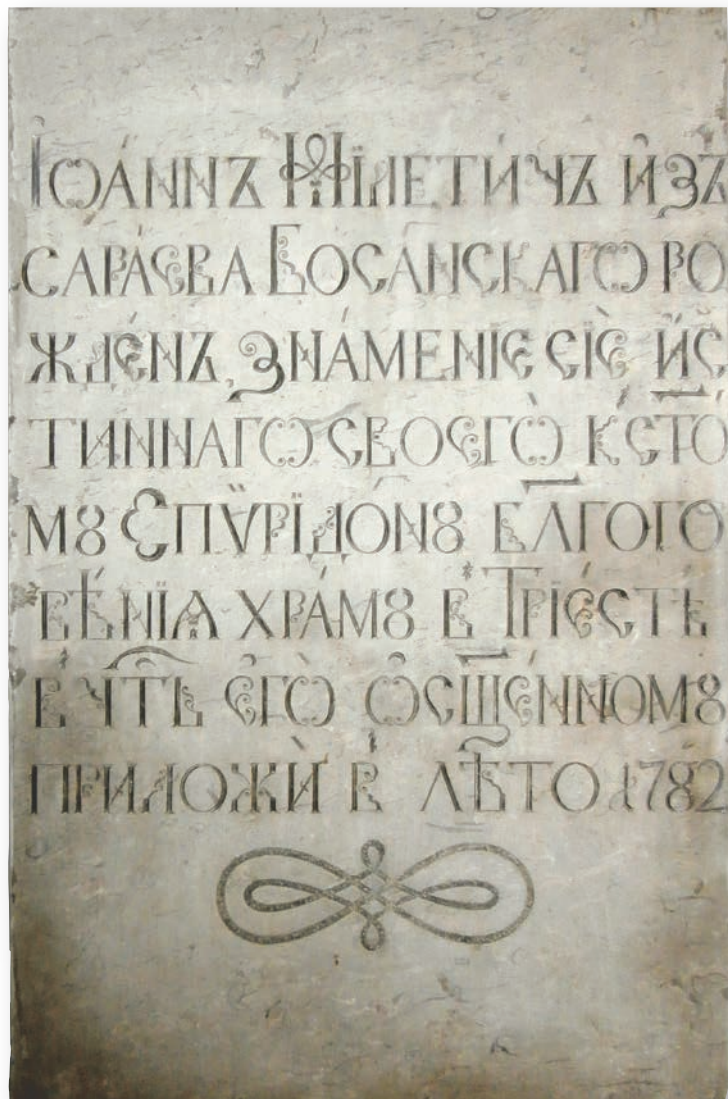 Іѡа́ннъ Міле́ти́чъ и҆зъ
сарае́ва Боса́нскагѡ ро
жде́нъ, зна́меніе сіѐ и҆́с
тиннагѡ своегѡ̀ к̾ с҃то
мꙋ Спѷрідо́нꙋ бл҃гого
вѣ́нїѧ хра́мꙋ в̾ Трїе́стѣ
в̾ ч҃ть є҆гѡ̀ ѡ҆сщ҃е́нномꙋ
приложѝ в̾ лѣ́то 1782